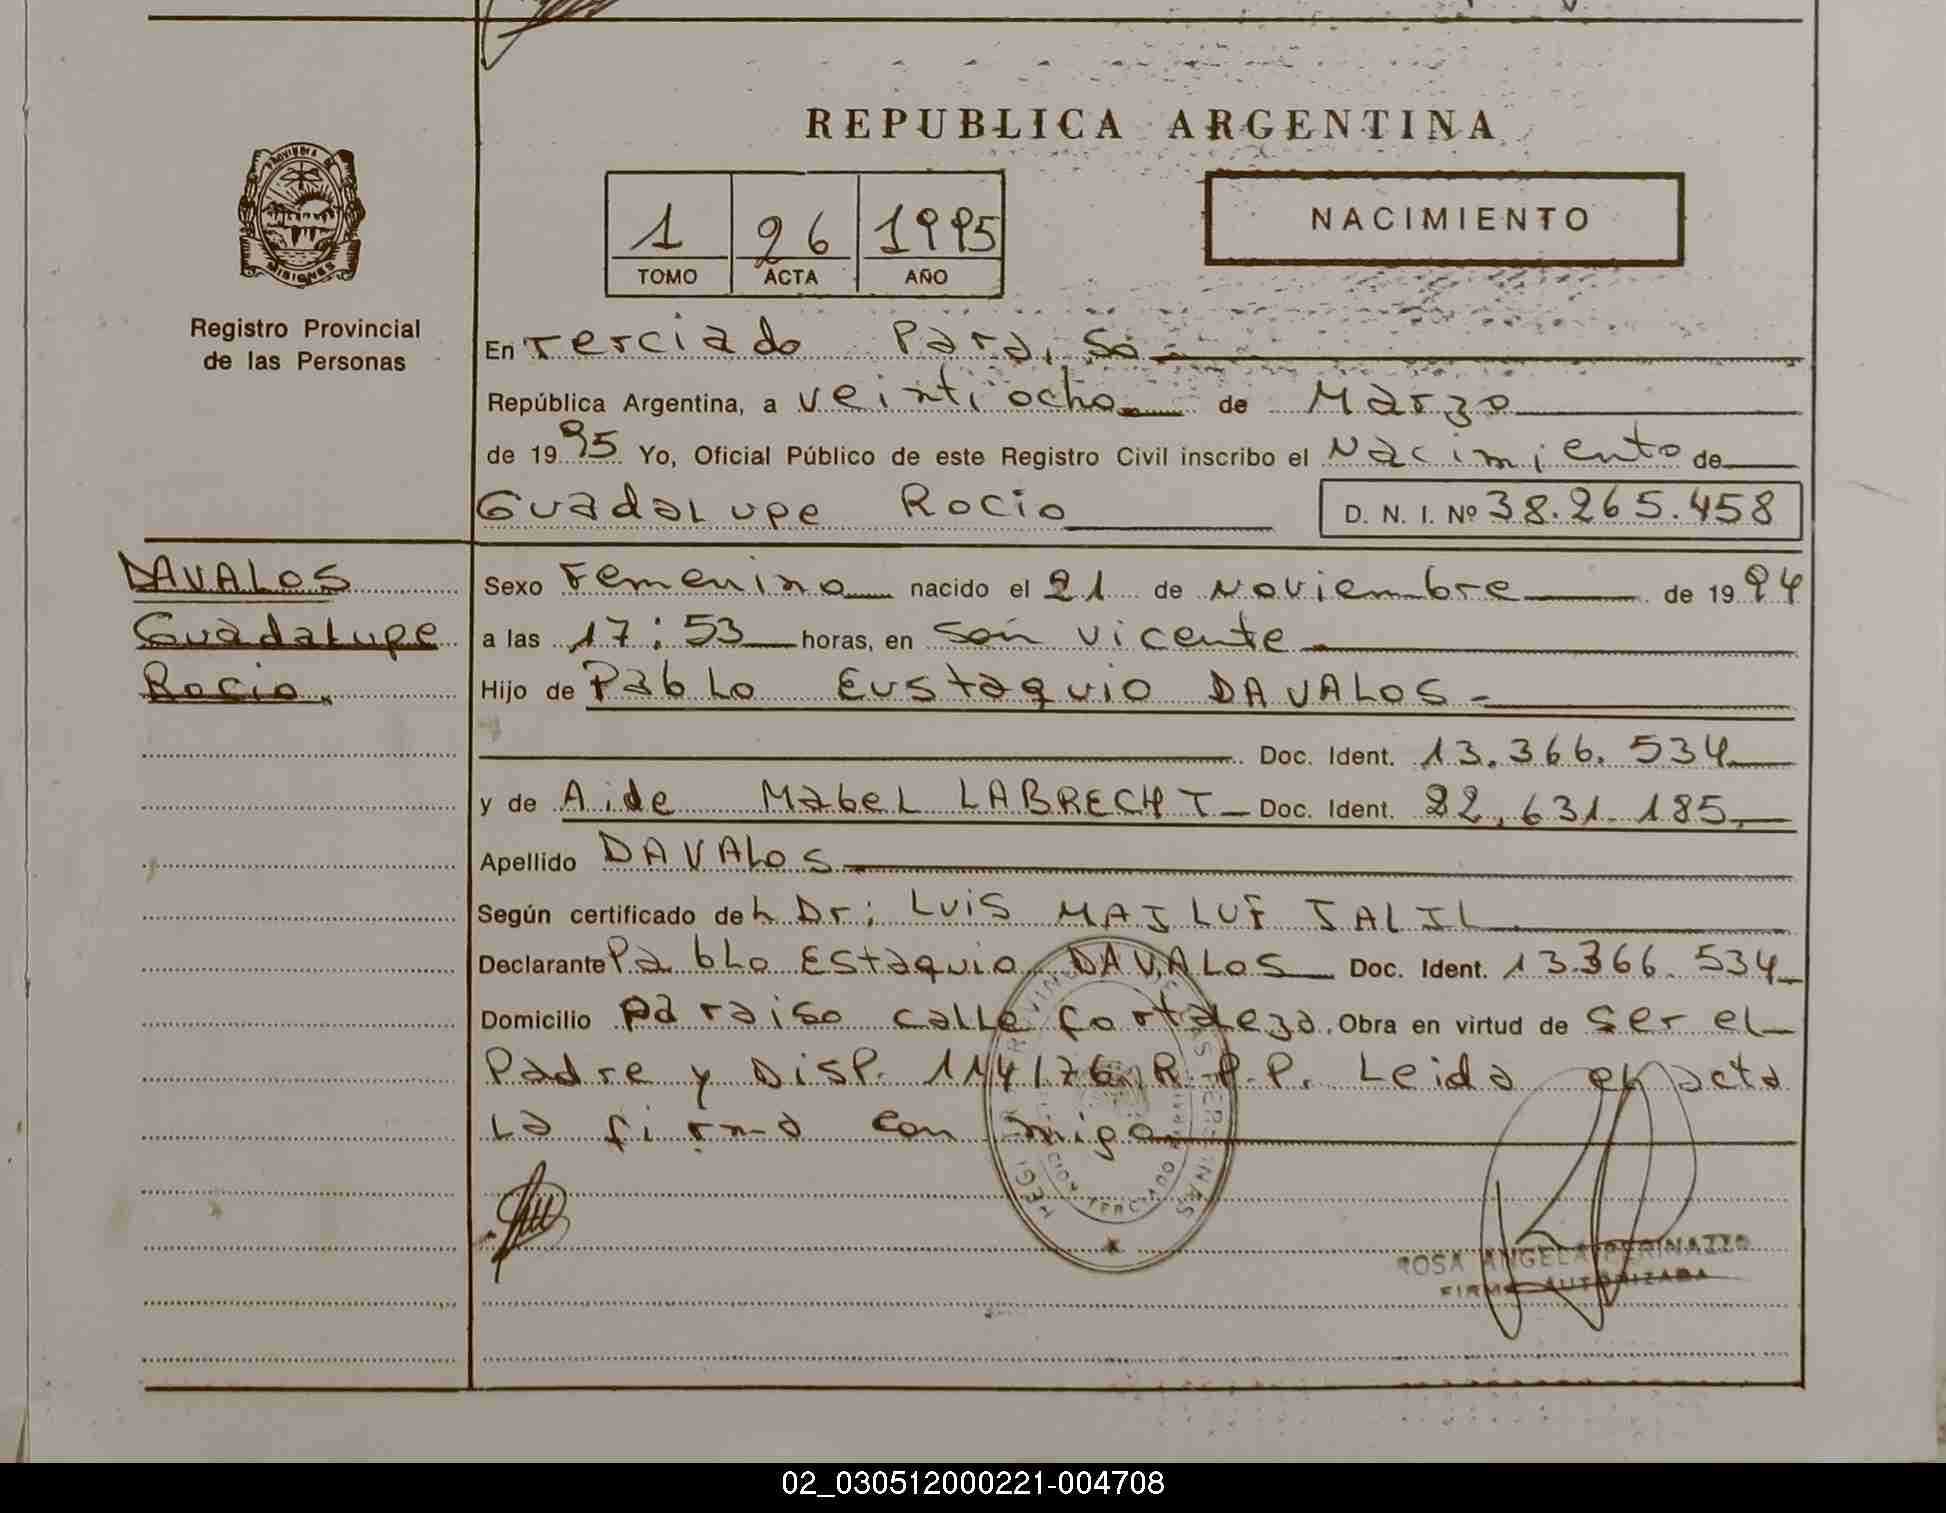 REPUBLICA ARGENTINA
PROVINCIA DE
MISIONES
Registro Provincial
de las Personas
1 26 1995
TOMO ACTA AÑO
NACIMIENTO
En Terciado Paraiso
República Argentina, a veintiocho de Marzo
de 1995 Yo, Oficial Público de este Registro Civil inscribo el Nacimiento de
Guadalupe Rocio D. N. I. Nº 38.265.458
DAVALOS
Guadalupe
Rocio.
Sexo Femenino nacido el 21 de Noviembre de 1994
a las 17:53 horas, en San Vicente
Hijo de Pablo Eustaquio DAVALOS
Doc. Ident. 13.366.534
y de Aide Mabel LABRECHT Doc. Ident. 22.631.185
Apellido DAVALOS
Según certificado del Dr: Luis MAJLUF JALIL
Declarante Pablo Estaquio DAVALOS Doc. Ident. 13.366.534
Domicilio paraiso calle fortaleza. Obra en virtud de ser el
Padre y Disp. 114/76 R.P.P. Leida el acta
la firma con migo
TERCIADO
ROSA ANGELA PERINAZZO
FIRMA AUTORIZADA
02_030512000221-004708